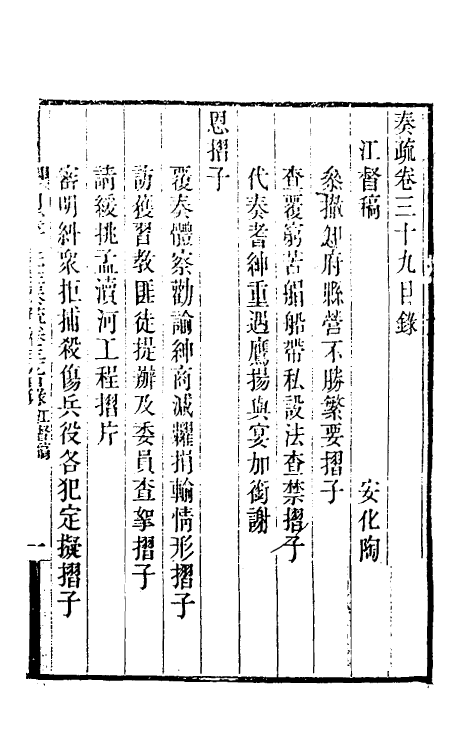 奏疏卷三十九目錄
江督稿 安化陶
叅撤知府縣營不勝繁要摺子
查覆窮苦艄船帶私設法查禁摺子
代奏耆紳重遇鷹揚與宴加銜謝
恩摺子
覆奏體察勸諭紳商減糶捐輸情形摺子
訪獲習教匪徒提辦及委員查拏摺子
請緩挑孟瀆河工程摺片
審明糾衆拒捕殺傷兵役各犯定擬摺子
江督稿
一